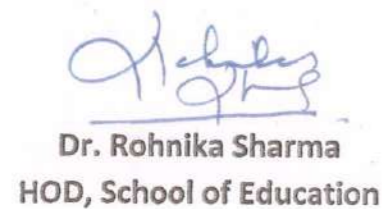 Dr. Rohnika Sharma
HOD, School of Education